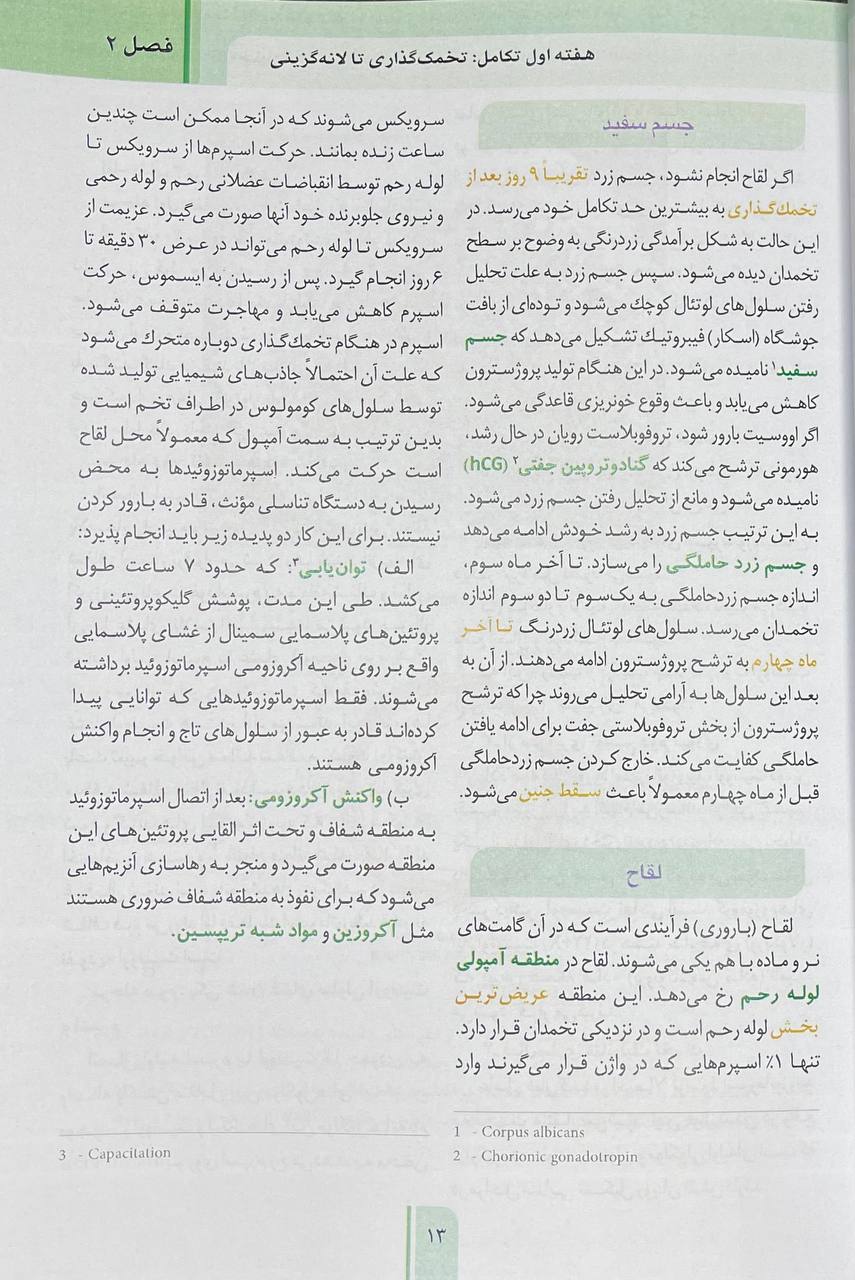 فصل ۲
هفته اول تکامل: تخمک‌گذاری تا لانه‌گزینی
جسم سفید
اگر لقاح انجام نشود، جسم زرد تقریباً ۹ روز بعد از
تخمك‌گذاری به بیشترین حد تکامل خود می‌رسد. در
این حالت به شکل برآمدگی زردرنگی به وضوح بر سطح
تخمدان دیده می‌شود. سپس جسم زرد به علت تحلیل
رفتن سلول‌های لوتئال کوچك می‌شود و توده‌ای از بافت
جوشگاه (اسکار) فیبروتیك تشکیل می‌دهد که جسم
سفید۱ نامیده می‌شود. در این هنگام تولید پروژسترون
کاهش می‌یابد و باعث وقوع خونریزی قاعدگی می‌شود.
اگر اووسیت بارور شود، تروفوبلاست رویان در حال رشد،
هورمونی ترشح می‌کند که گنادوتروپین جفتی۲ (hCG)
نامیده می‌شود و مانع از تحلیل رفتن جسم زرد می‌شود.
به این ترتیب جسم زرد به رشد خودش ادامه می‌دهد
و جسم زرد حاملگی را می‌سازد. تا آخر ماه سوم،
اندازه جسم زردحاملگی به یک‌سوم تا دو سوم اندازه
تخمدان می‌رسد. سلول‌های لوتئال زردرنگ تا آخر
ماه چهارم به ترشح پروژسترون ادامه می‌دهند. از آن به
بعد این سلول‌ها به آرامی تحلیل می‌روند چرا که ترشح
پروژسترون از بخش تروفوبلاستی جفت برای ادامه یافتن
حاملگی کفایت می‌کند. خارج کردن جسم زردحاملگی
قبل از ماه چهارم معمولاً باعث سقط جنین می‌شود.
لقاح
لقاح (باروری) فرآیندی است که در آن گامت‌های
نر و ماده با هم یکی می‌شوند. لقاح در منطقه آمپولی
لوله رحم رخ می‌دهد. این منطقه عریض‌ترین
بخش لوله رحم است و در نزدیکی تخمدان قرار دارد.
تنها ۱٪ اسپرم‌هایی که در واژن قرار می‌گیرند وارد
1 - Corpus albicans
2 - Chorionic gonadotropin
سرویکس می‌شوند که در آنجا ممکن است چندین
ساعت زنده بمانند. حرکت اسپرم‌ها از سرویکس تا
لوله رحم توسط انقباضات عضلانی رحم و لوله رحمی
و نیروی جلوبرنده خود آنها صورت می‌گیرد. عزیمت از
سرویکس تا لوله رحم می‌تواند در عرض ۳۰ دقیقه تا
۶ روز انجام گیرد. پس از رسیدن به ایسموس، حرکت
اسپرم کاهش می‌یابد و مهاجرت متوقف می‌شود.
اسپرم در هنگام تخمك‌گذاری دوباره متحرك می‌شود
که علت آن احتمالاً جاذب‌های شیمیایی تولید شده
توسط سلول‌های کومولوس در اطراف تخم است و
بدین ترتیب به سمت آمپول که معمولاً محل لقاح
است حرکت می‌کند. اسپرماتوزوئیدها به محض
رسیدن به دستگاه تناسلی مؤنث، قادر به بارور کردن
نیستند. برای این کار دو پدیده زیر باید انجام پذیرد:
الف) توان‌یابی۳: که حدود ۷ ساعت طول
می‌کشد. طی این مدت، پوشش گلیکوپروتئینی و
پروتئین‌های پلاسمایی سمینال از غشای پلاسمایی
واقع بر روی ناحیه آکروزومی اسپرماتوزوئید برداشته
می‌شوند. فقط اسپرماتوزوئیدهایی که توانایی پیدا
کرده‌اند قادر به عبور از سلول‌های تاج و انجام واکنش
آکروزومی هستند.
ب) واکنش آکروزومی: بعد از اتصال اسپرماتوزوئید
به منطقه شفاف و تحت اثر القایی پروتئین‌های این
منطقه صورت می‌گیرد و منجر به رهاسازی آنزیم‌هایی
می‌شود که برای نفوذ به منطقه شفاف ضروری هستند
مثل آکروزین و مواد شبه تریپسین.
3 - Capacitation
۱۳